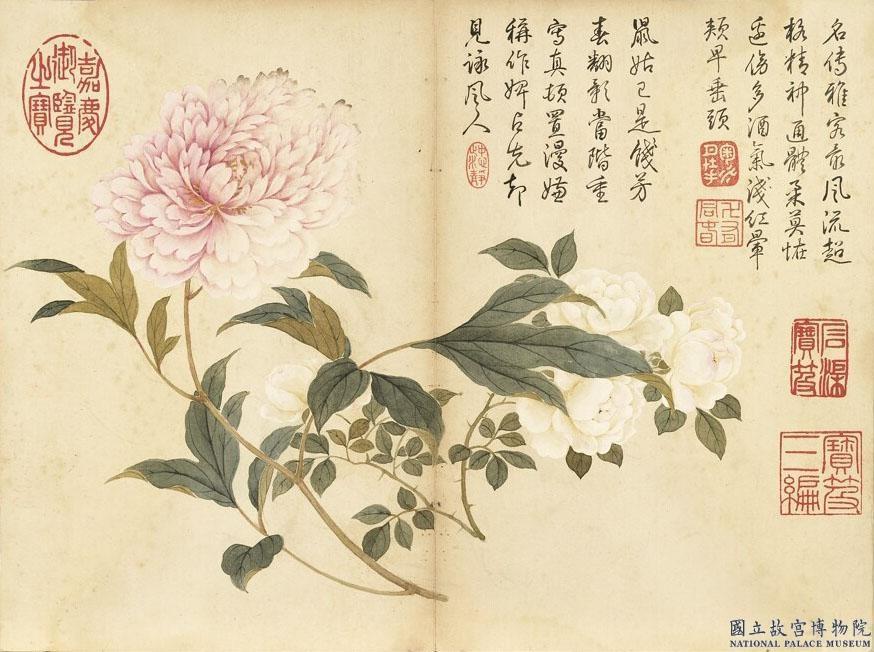 名傳雅客最風流超
格精神通體柔莫怪
傍多酒氣淺紅暈
頰早垂頭
鼠姑已是餞芳
春翻影當階重
寫真頓置漫嫌
稱作婢占先却
見詠風人
嘉慶御覽之寶
石渠寶笈
寶笈三編
國立故宮博物院
NATIONAL PALACE MUSEUM